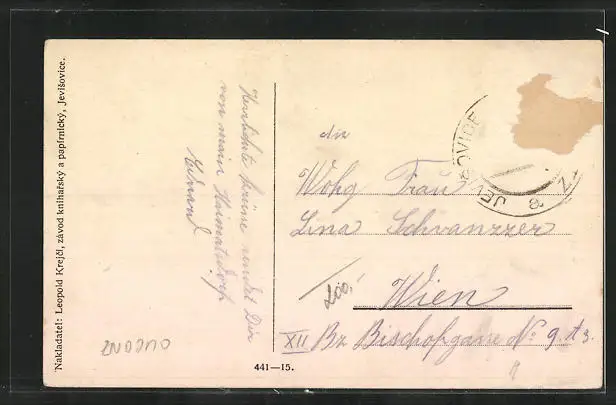 Nakladatel: Leopold Krejčí, závod knihařský a papírnický, Jevišovice.
Herzlichste Grüsse sendet Dir
von mein Heimatsdorf
Eduard
die
Wohg Frau
Lina Schvanzzer
Wien
XII Bz Bischofgasse No 9. t 3.
441—15.
JEVIŠOVICE
ZNOJMO